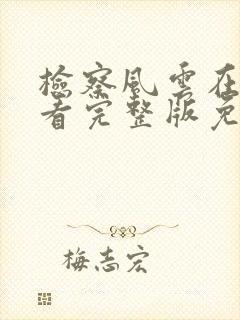 檢察風雲在
看完整版免
梅志宏